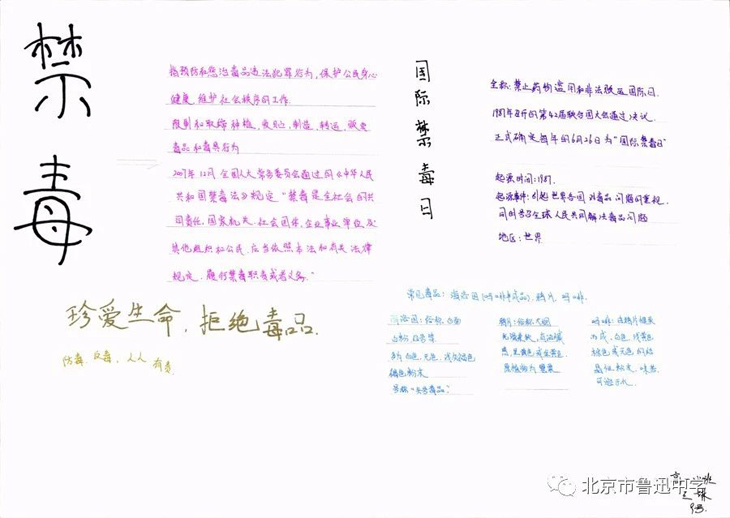 禁毒
指预防和惩治毒品违法犯罪行为,保护公民身心
健康,维护社会秩序的工作
限制和取缔种植,制造,转运,贩卖
毒品和毒害行为
2007年12月 全国人大常务委员会通过的《中华人民
共和国禁毒法》规定"禁毒是全社会的共
同责任,国家机关,社会团体,企业事业单位及
其他组织和公民,应当依照本法和有关法律
规定,履行禁毒职责或者义务。"
珍爱生命,拒绝毒品.
防毒、反毒、人人有责.
国际禁毒日
全称:禁止药物滥用和非法贩运国际日.
1987年召开的第42届联合国大会通过决议.
正式确定每年的6月26日为"国际禁毒日"
起源时间:1987.
起源事件:引起世界各国对毒品问题的重视,
同时号召全球人民共同解决毒品问题
地区:世界
常见毒品:海洛因(吗啡半成品),鸦片,吗啡.
海洛因:俗称,白面
鸦片:俗称大烟
北京市鲁迅中学